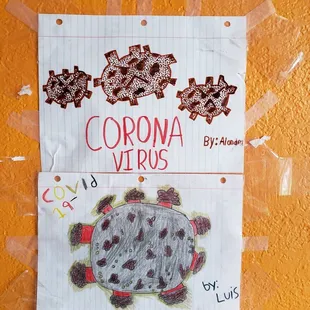 CORONA
VIRUS
By:
COVId
19-
by:
Luis